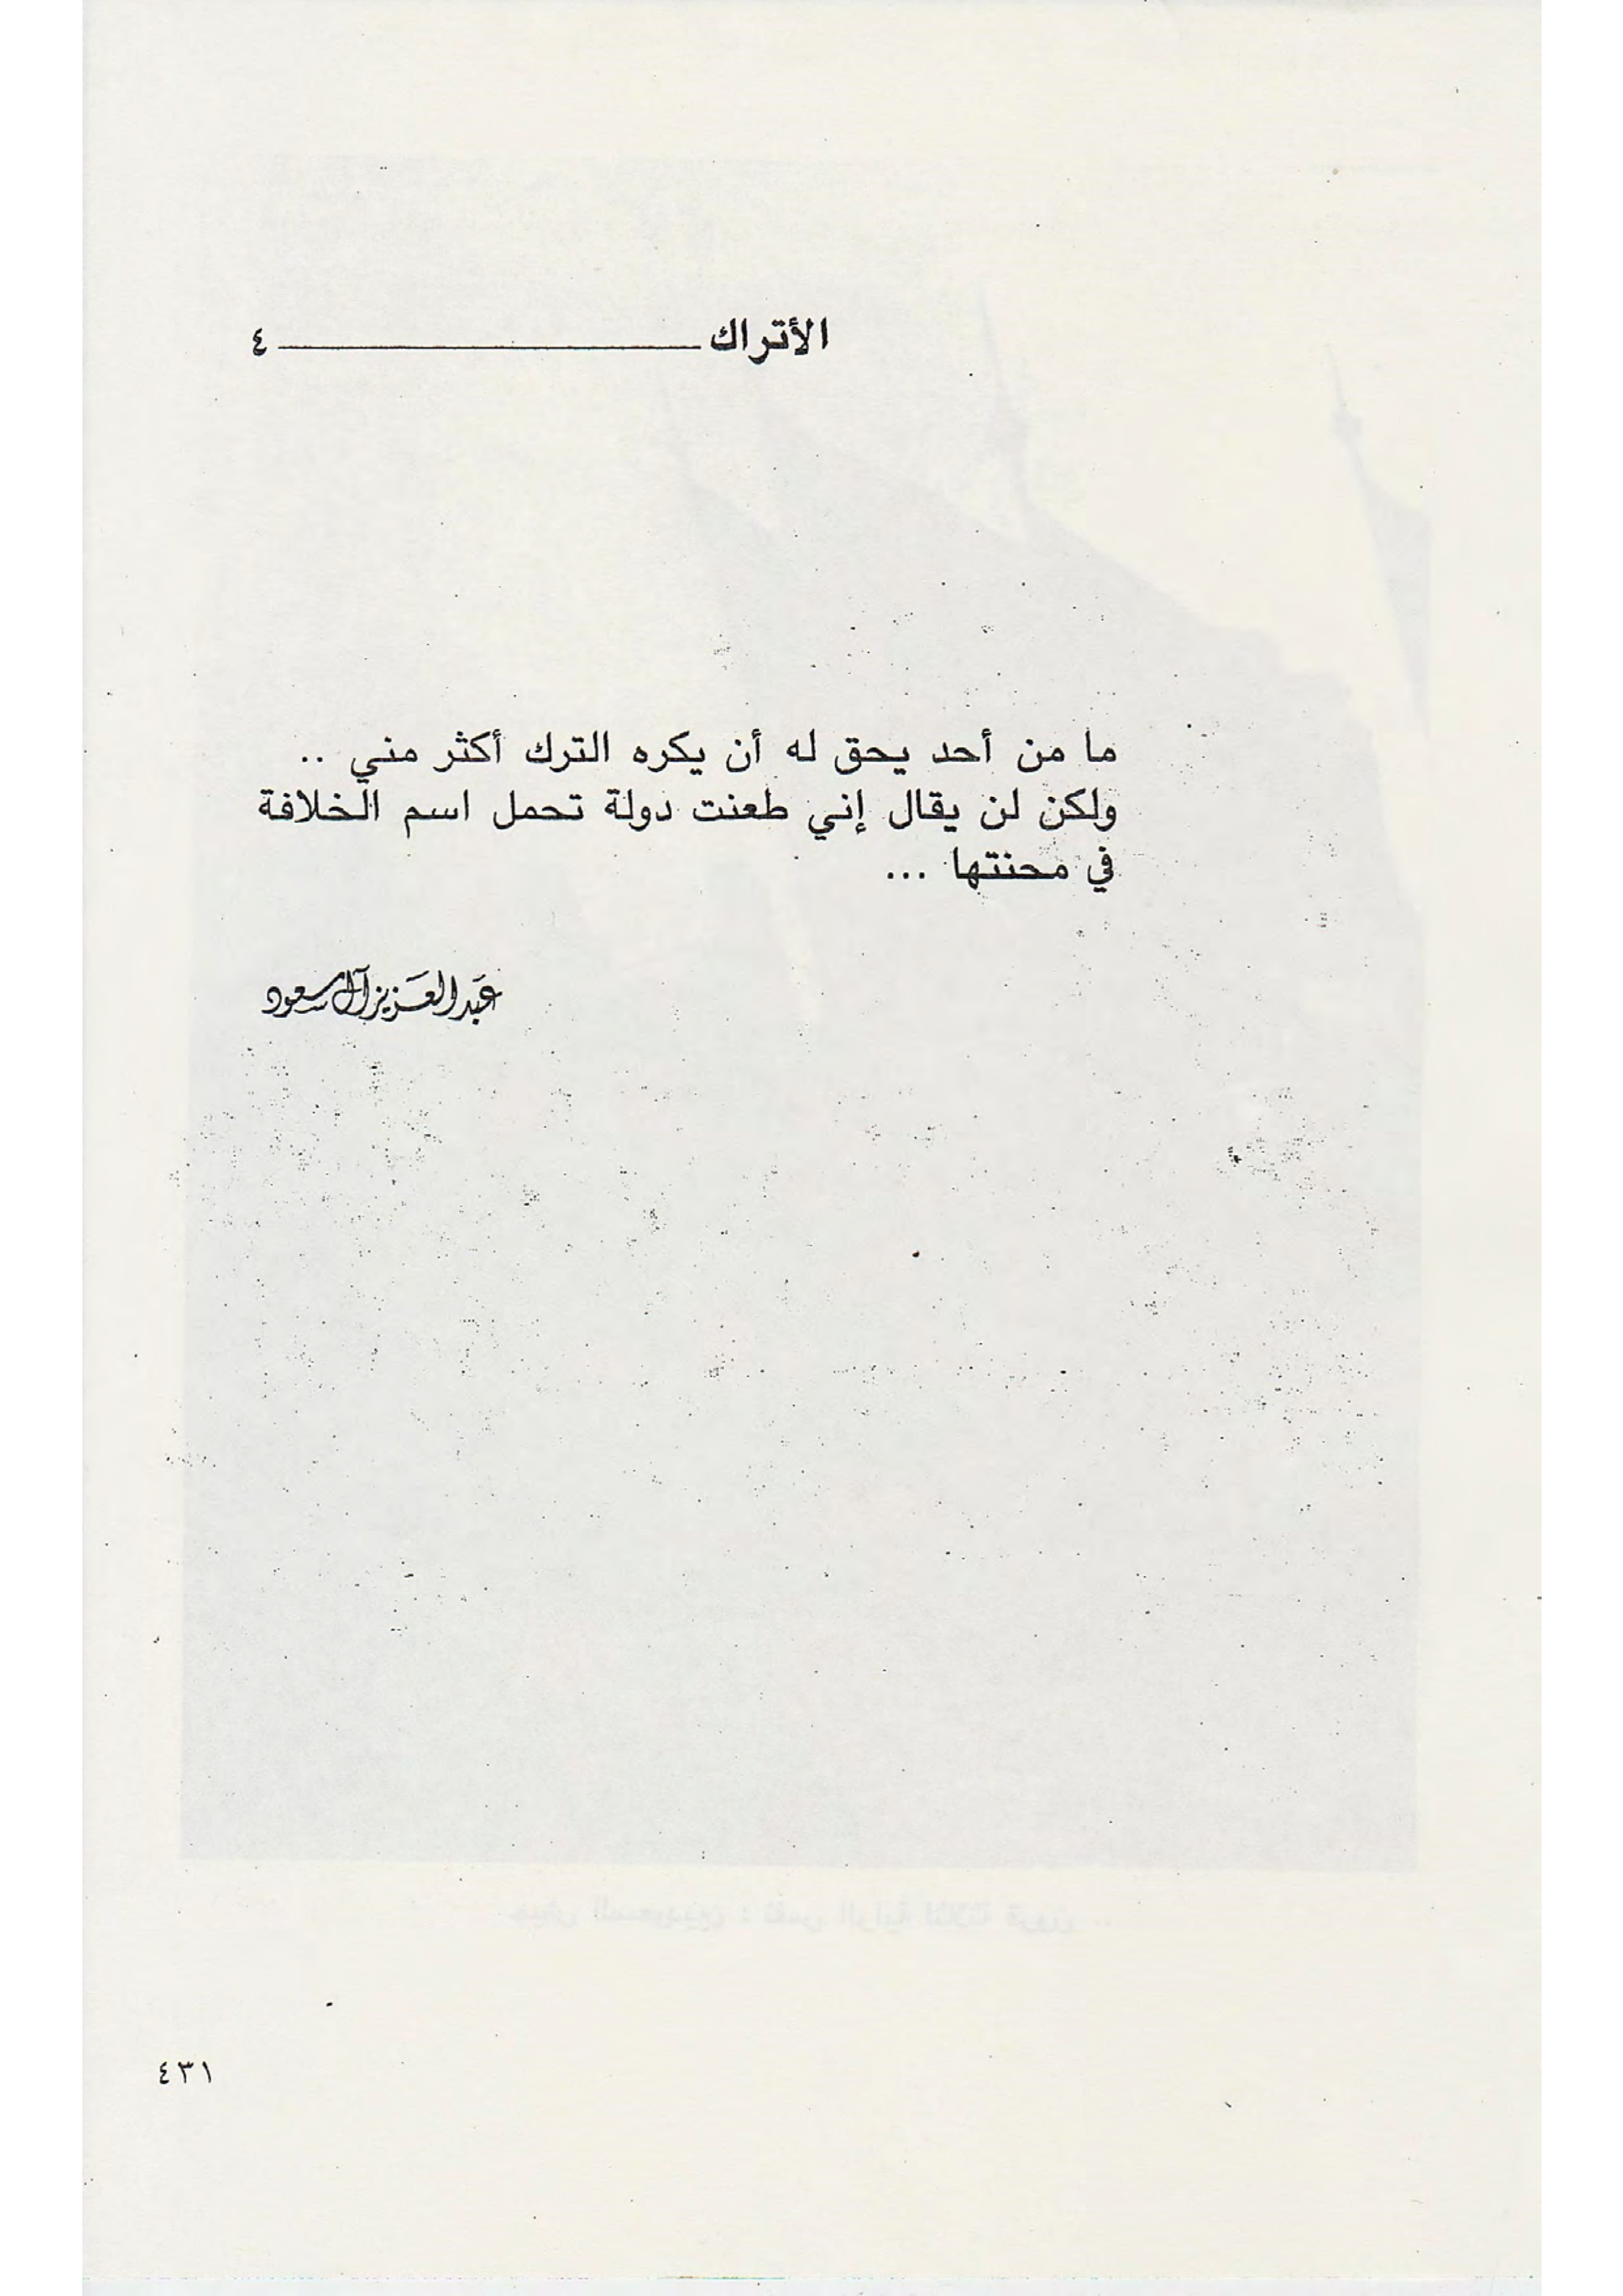 الأتراك ــــــــــــــــ ٤
ما من أحد يحق له أن يكره الترك أكثر مني ..
ولكن لن يقال إني طعنت دولة تحمل اسم الخلافة
في محنتها ...
عَبد العَزيز آل سعود
٤٣١